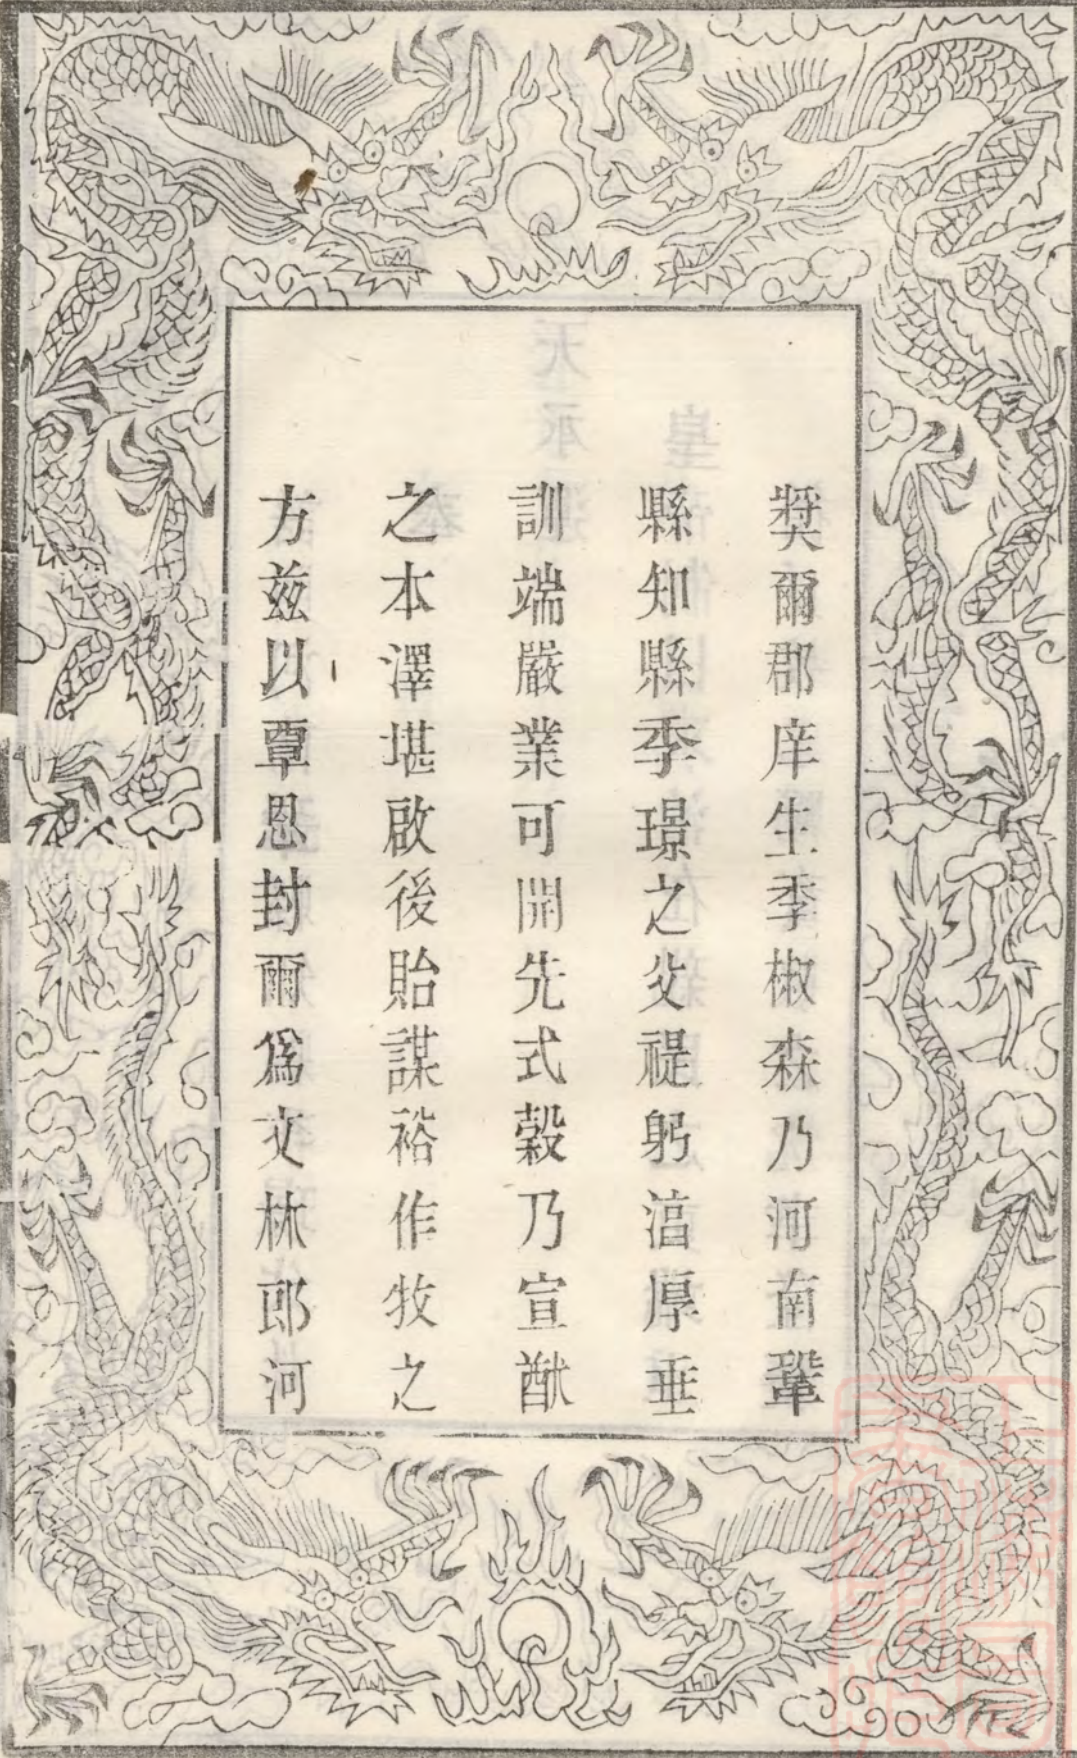 奬爾郡庠生季椒森乃河南鞏
縣知縣季璟之父禔躬湻厚垂
訓端嚴業可開先式穀乃宣猷
之本澤堪啟後貽謀裕作牧之
方兹以覃恩封爾爲文林郎河